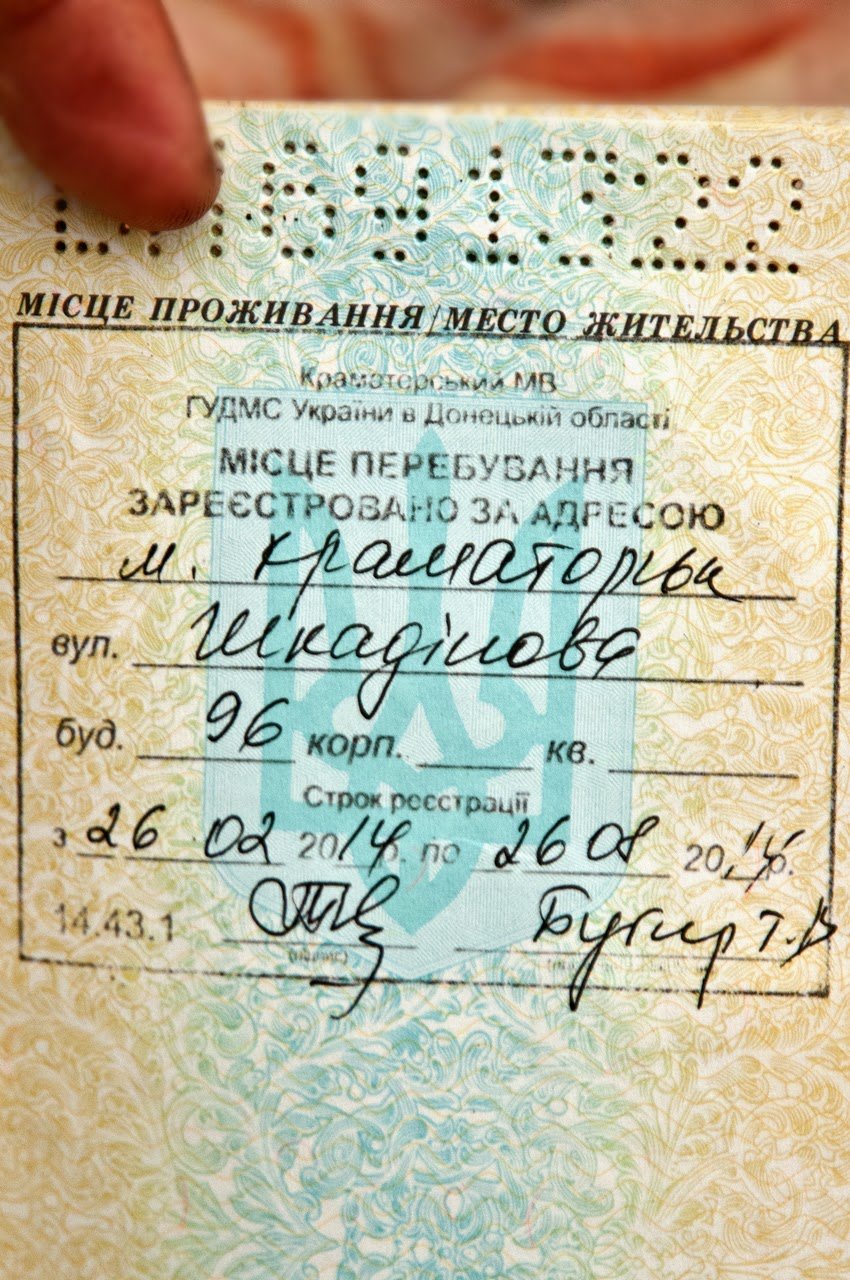 691722
МІСЦЕ ПРОЖИВАННЯ/МЕСТО ЖИТЕЛЬСТВА
Краматорський МВ
ГУДМС України в Донецькій області
МІСЦЕ ПЕРЕБУВАННЯ
ЗАРЕЄСТРОВАНО ЗА АДРЕСОЮ
м. Краматорськ
вул. Шкадінова
буд. 96 корп. кв.
Строк реєстрації
з 26 02 2014р. по 26 08 2014р.
14.43.1 Т.В
(підпис)